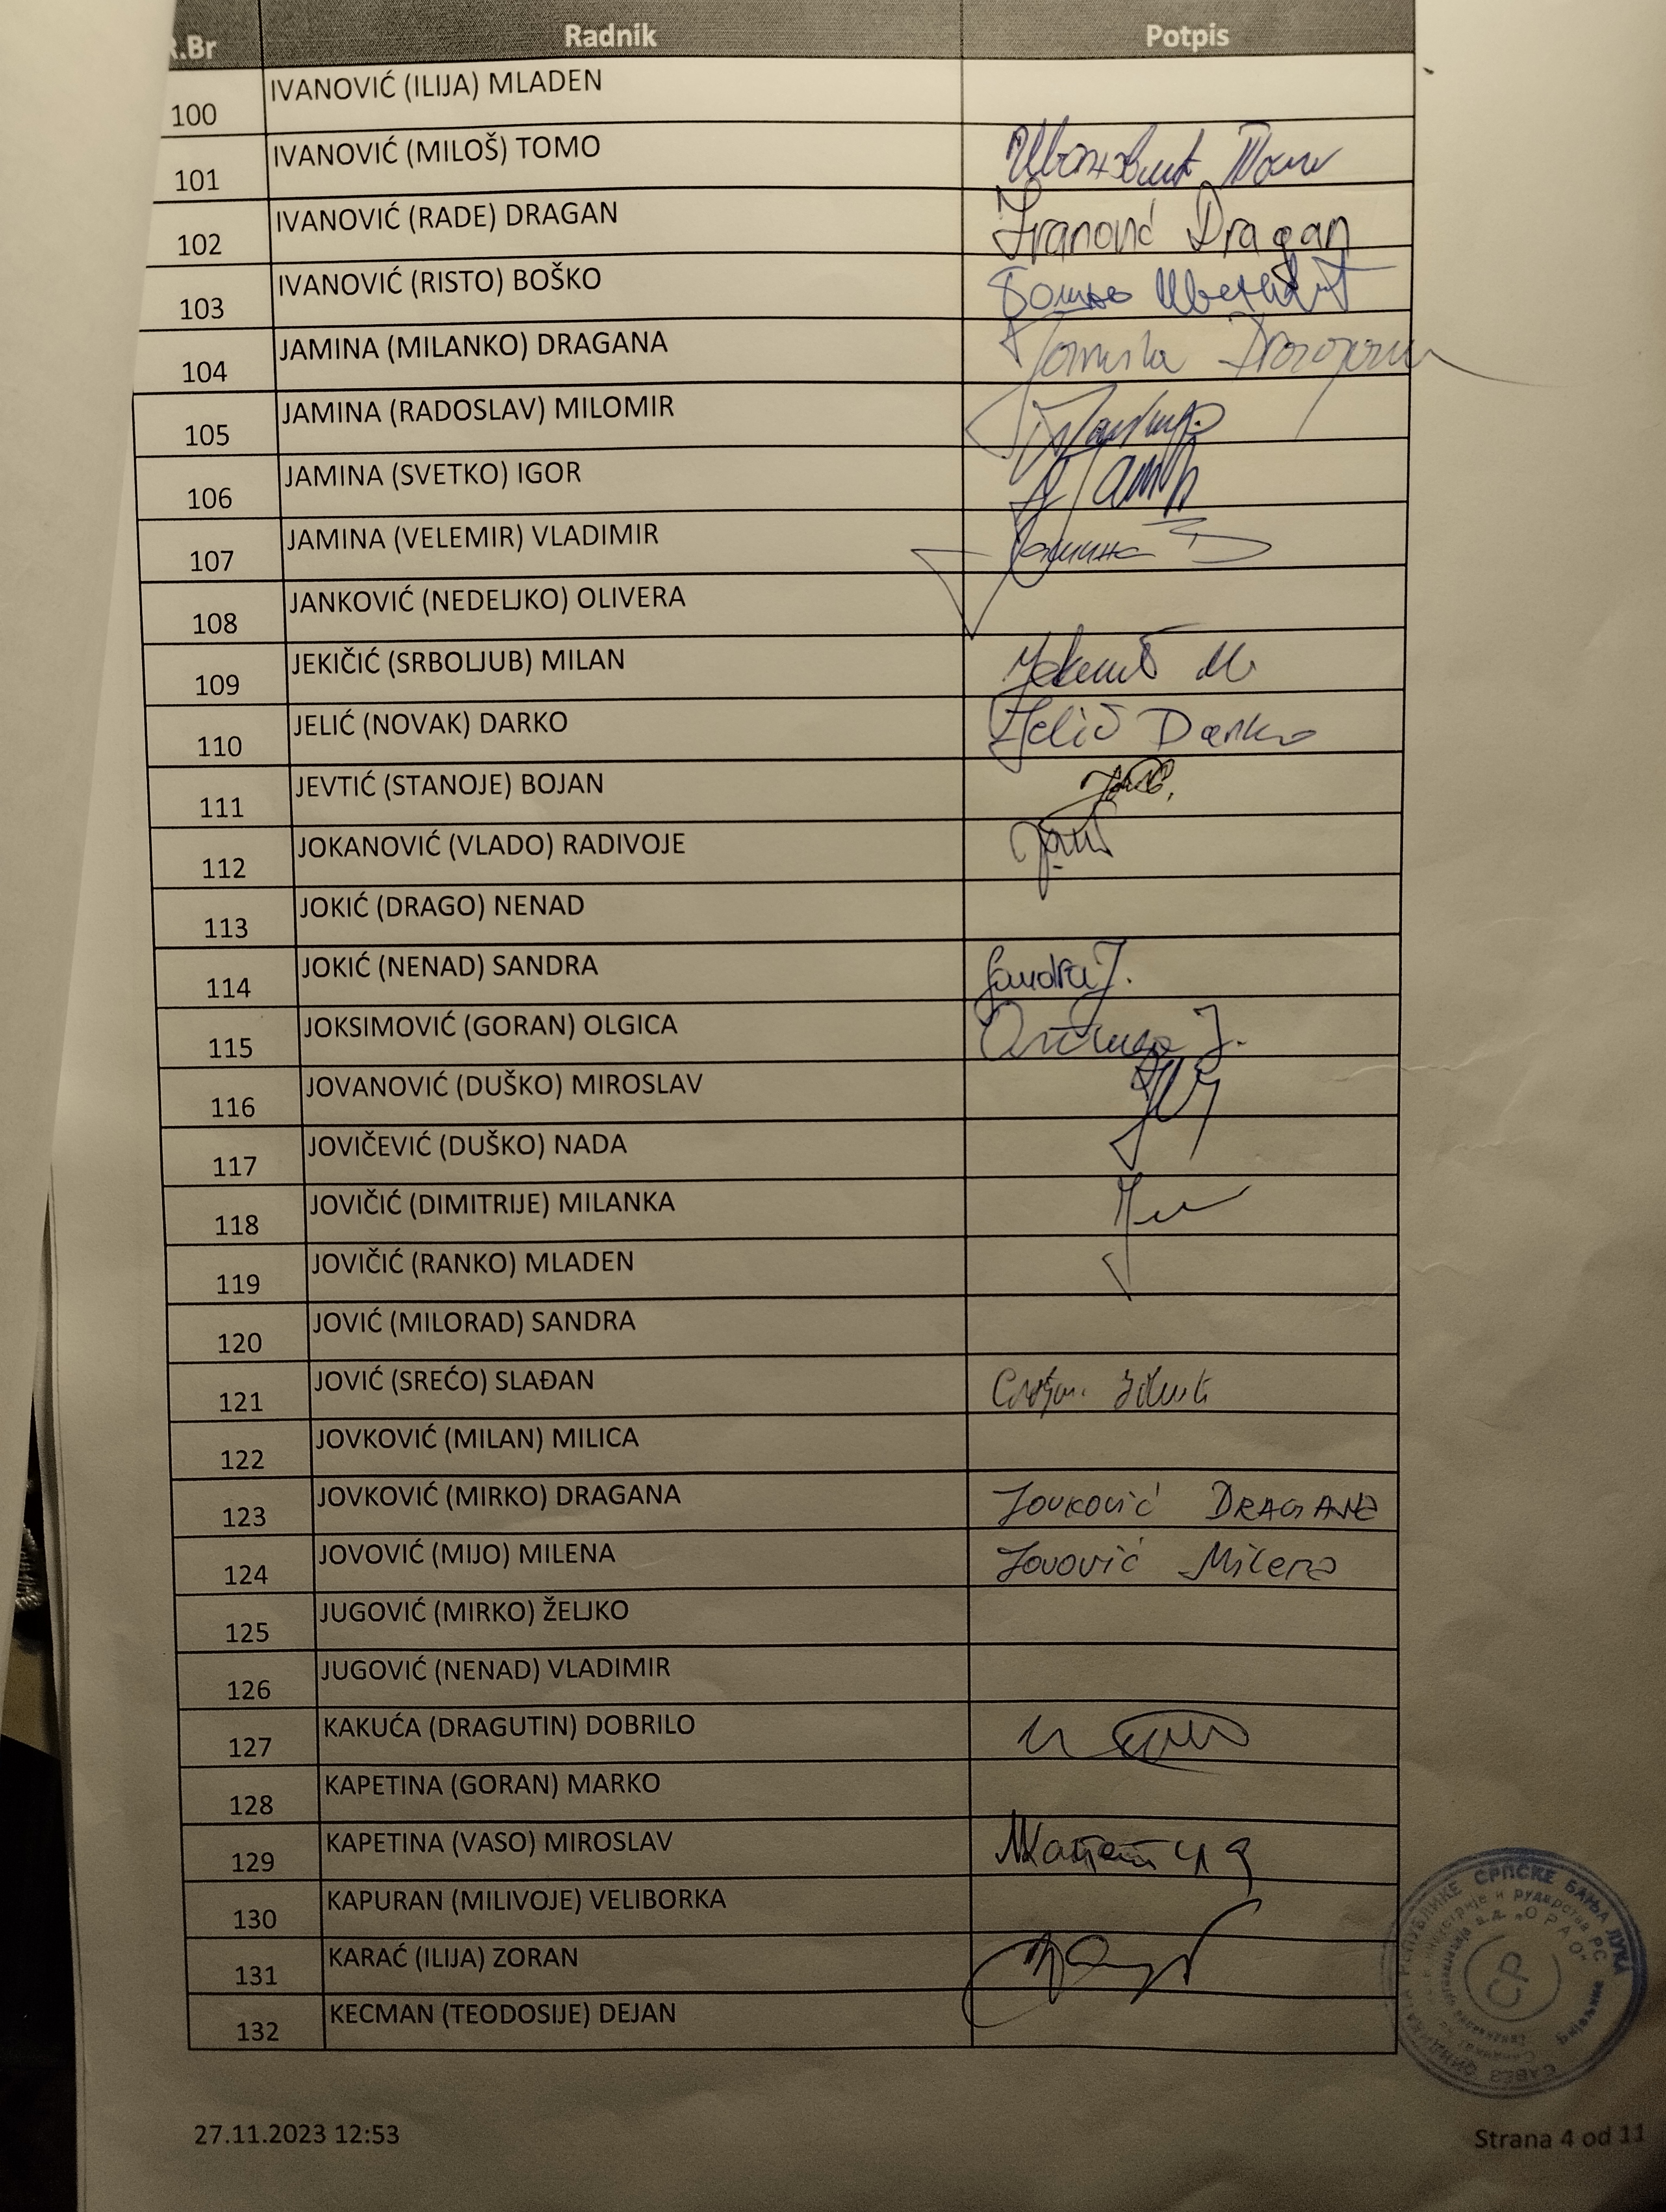 R.Br Radnik Potpis
100 IVANOVIĆ (ILIJA) MLADEN
101 IVANOVIĆ (MILOŠ) TOMO Ивановић Томо
102 IVANOVIĆ (RADE) DRAGAN Ivanović Dragan
103 IVANOVIĆ (RISTO) BOŠKO Бошко Ивановић
104 JAMINA (MILANKO) DRAGANA
105 JAMINA (RADOSLAV) MILOMIR
106 JAMINA (SVETKO) IGOR
107 JAMINA (VELEMIR) VLADIMIR Јамина В
108 JANKOVIĆ (NEDELJKO) OLIVERA
109 JEKIČIĆ (SRBOLJUB) MILAN
110 JELIĆ (NOVAK) DARKO Jelić Darko
111 JEVTIĆ (STANOJE) BOJAN
112 JOKANOVIĆ (VLADO) RADIVOJE
113 JOKIĆ (DRAGO) NENAD
114 JOKIĆ (NENAD) SANDRA Sandra J.
115 JOKSIMOVIĆ (GORAN) OLGICA
116 JOVANOVIĆ (DUŠKO) MIROSLAV
117 JOVIČEVIĆ (DUŠKO) NADA
118 JOVIČIĆ (DIMITRIJE) MILANKA
119 JOVIČIĆ (RANKO) MLADEN
120 JOVIĆ (MILORAD) SANDRA
121 JOVIĆ (SREĆO) SLAĐAN
122 JOVKOVIĆ (MILAN) MILICA
123 JOVKOVIĆ (MIRKO) DRAGANA Jovković DRAGANA
124 JOVOVIĆ (MIJO) MILENA Jovović Milena
125 JUGOVIĆ (MIRKO) ŽELJKO
126 JUGOVIĆ (NENAD) VLADIMIR
127 KAKUĆA (DRAGUTIN) DOBRILO
128 KAPETINA (GORAN) MARKO
129 KAPETINA (VASO) MIROSLAV МКапетина
130 KAPURAN (MILIVOJE) VELIBORKA
131 KARAĆ (ILIJA) ZORAN
132 KECMAN (TEODOSIJE) DEJAN
САВЕЗ СИНДИКАТА РЕПУБЛИКЕ СРПСКЕ БАЊА ЛУКА
индустрије и рударства РС
организација а.д. "ОРАО"
СР
Бијељина
27.11.2023 12:53
Strana 4 od 11